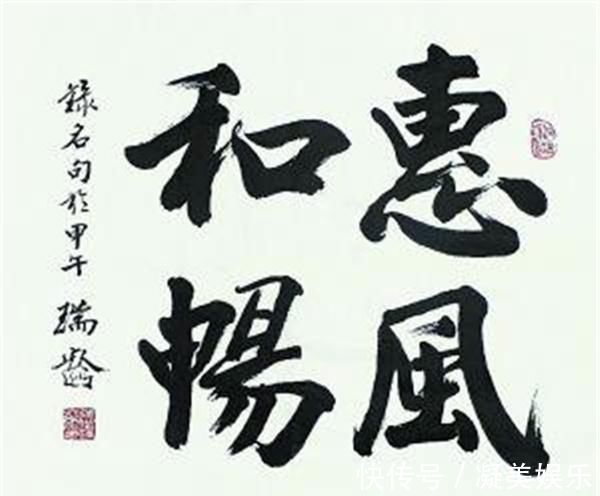 惠風
和暢
錄名句於甲午 瑞齡
快传号 / 凝美娱乐